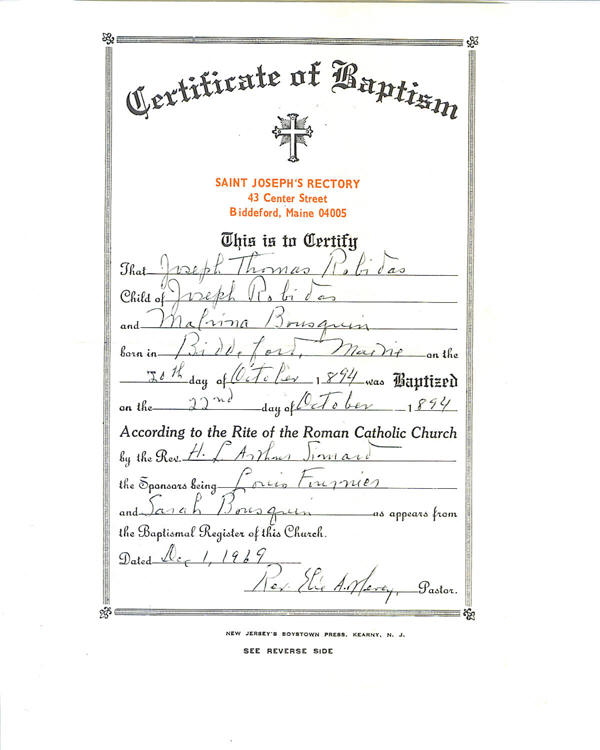 Certificate of Baptism
SAINT JOSEPH'S RECTORY
43 Center Street
Biddeford, Maine 04005
This is to Certify
That Joseph Thomas Robidas
Child of Joseph Robidas
and Malvina Bousquin
born in Biddeford, Maine on the
20th day of October 1894 was Baptized
on the 22nd day of October 1894
According to the Rite of the Roman Catholic Church
by the Rev. H. L Arthur Simard
the Sponsors being Louis Fournier
and Sarah Bousquin as appears from
the Baptismal Register of this Church.
Dated Dec 1, 1969
Rev. Elie A. Pastor.
NEW JERSEY'S BOYSTOWN PRESS, KEARNY, N. J.
SEE REVERSE SIDE